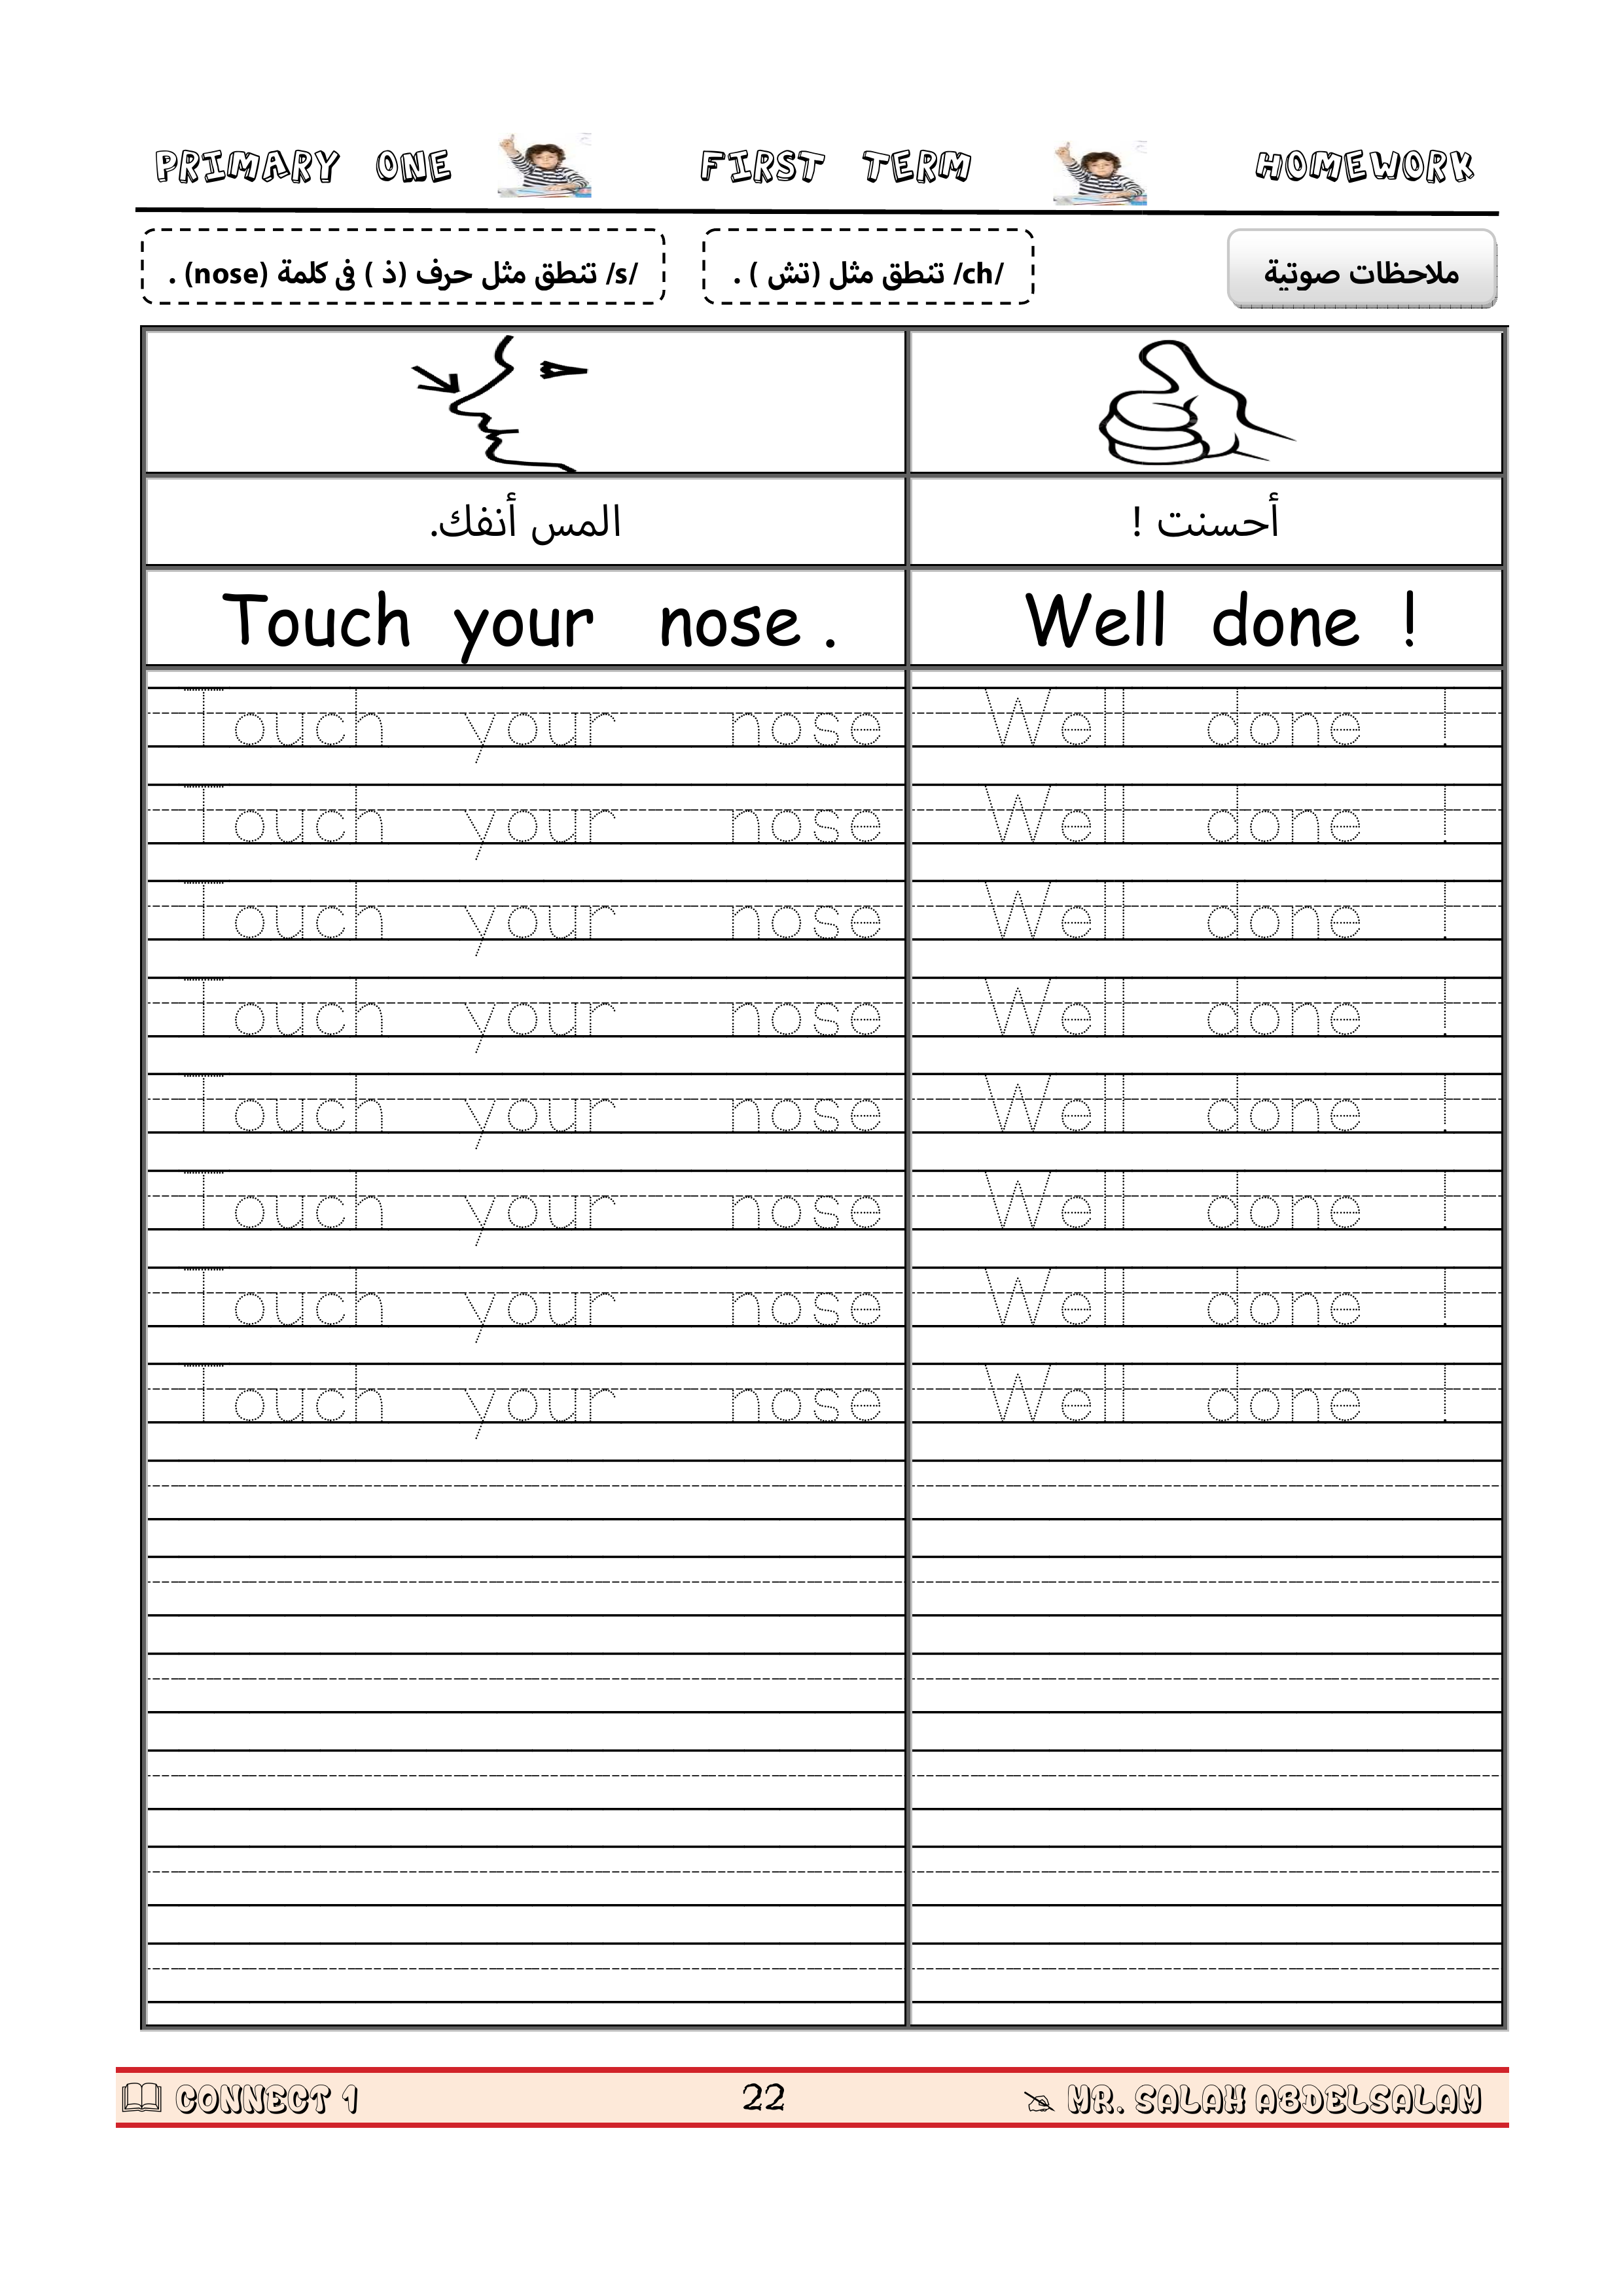 PRIMARY ONE FIRST TERM HOMEWORK
ملاحظات صوتية
/ch/ تنطق مثل (تش ) .
/s/ تنطق مثل حرف (ذ ) فى كلمة (nose) .
المس أنفك.
أحسنت !
Touch your nose .
Well done !
Touch your nose Well done !
Touch your nose Well done !
Touch your nose Well done !
Touch your nose Well done !
Touch your nose Well done !
Touch your nose Well done !
Touch your nose Well done !
Touch your nose Well done !
CONNECT 1 22 MR. SALAH ABDELSALAM